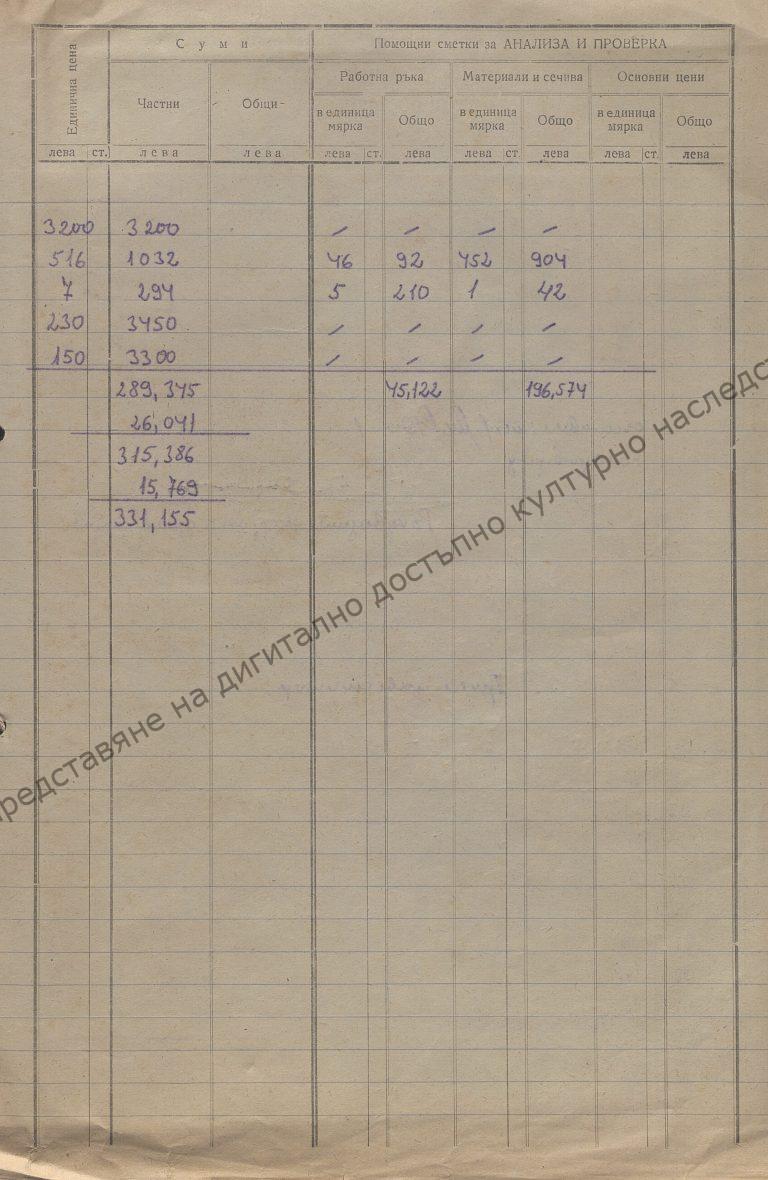 Единична цена
Суми
Помощни сметки за АНАЛИЗА И ПРОВЕРКА
Частни
Общи
Работна ръка
Материали и сечива
Основни цени
в единица мярка
Общо
в единица мярка
Общо
в единица мярка
Общо
лева ст. лева лева лева ст. лева лева ст. лева лева ст. лева
3200 3200 – – – –
516 1032 46 92 452 904
7 294 5 210 1 42
230 3450 – – – –
150 3300 – – – –
289,345 45,122 196,574
26,041
315,386
15,769
331,155
редставяне на дигитално достъпно културно наследст